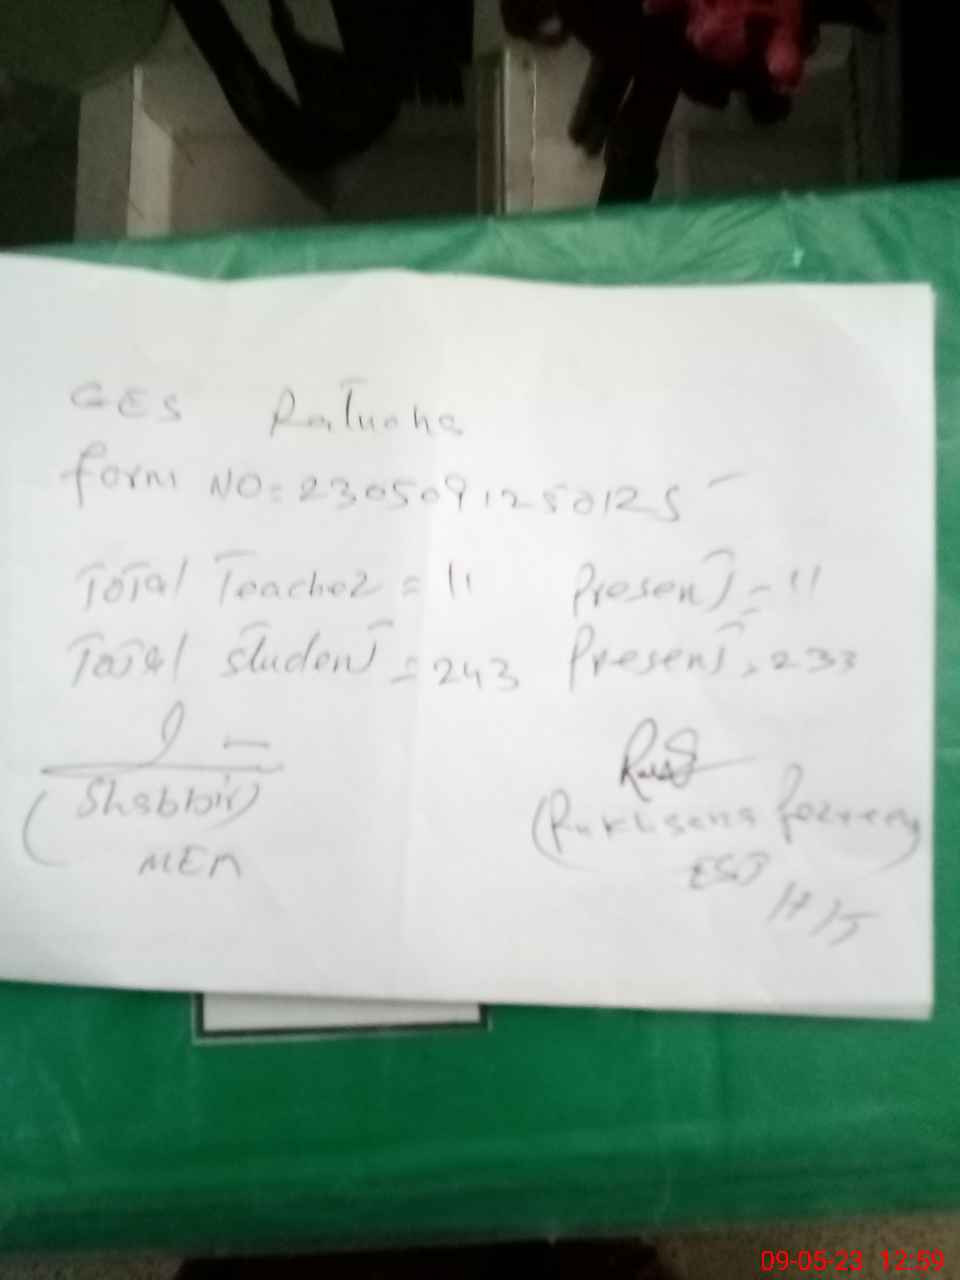 GES Ratucha
form NO=2305091250125
Total Teacher = 11 Present = 11
Total student = 243 Present = 233
(Shabbir)
MEA
(Rukhsana
EST
09-05-23 12:59